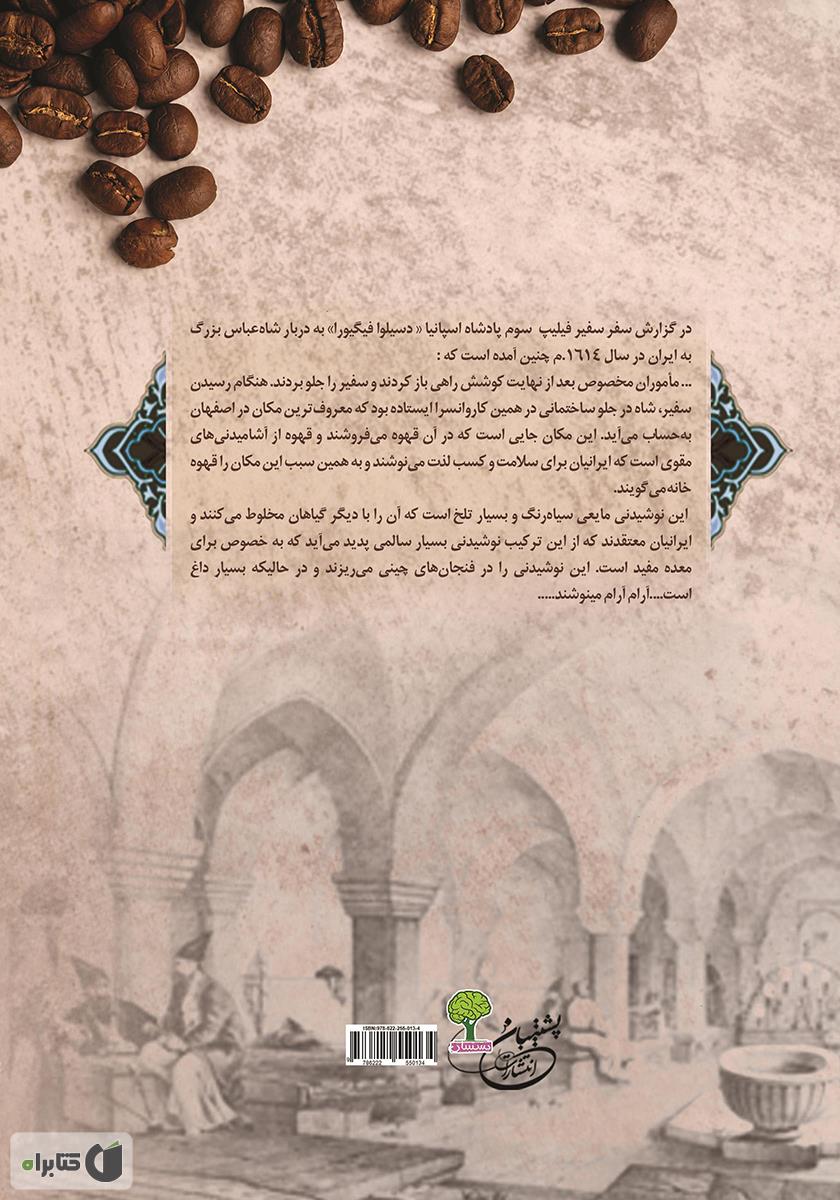 در گزارش سفر سفیر فیلیپ سوم پادشاه اسپانیا « دسیلوا فیگیورا» به دربار شاه‌عباس بزرگ
به ایران در سال ١٦١٤.م چنین آمده است که :
... مأموران مخصوص بعد از نهایت کوشش راهی باز کردند و سفیر را جلو بردند. هنگام رسیدن
سفیر، شاه در جلو ساختمانی در همین کاروانسرا ایستاده بود که معروف‌ترین مکان در اصفهان
به‌حساب می‌آید. این مکان جایی است که در آن قهوه می‌فروشند و قهوه از آشامیدنی‌های
مقوی است که ایرانیان برای سلامت و کسب لذت می‌نوشند و به همین سبب این مکان را قهوه
خانه‌می‌گویند.
این نوشیدنی مایعی سیاه‌رنگ و بسیار تلخ است که آن را با دیگر گیاهان مخلوط می‌کنند و
ایرانیان معتقدند که از این ترکیب نوشیدنی بسیار سالمی پدید می‌آید که به خصوص برای
معده مفید است. این نوشیدنی را در فنجان‌های چینی می‌ریزند و در حالیکه بسیار داغ
است....آرام آرام مینوشند.....
ISBN:978-622-255-013-4
9 786222 550134
انتشارات پشتیبان
کتابراه